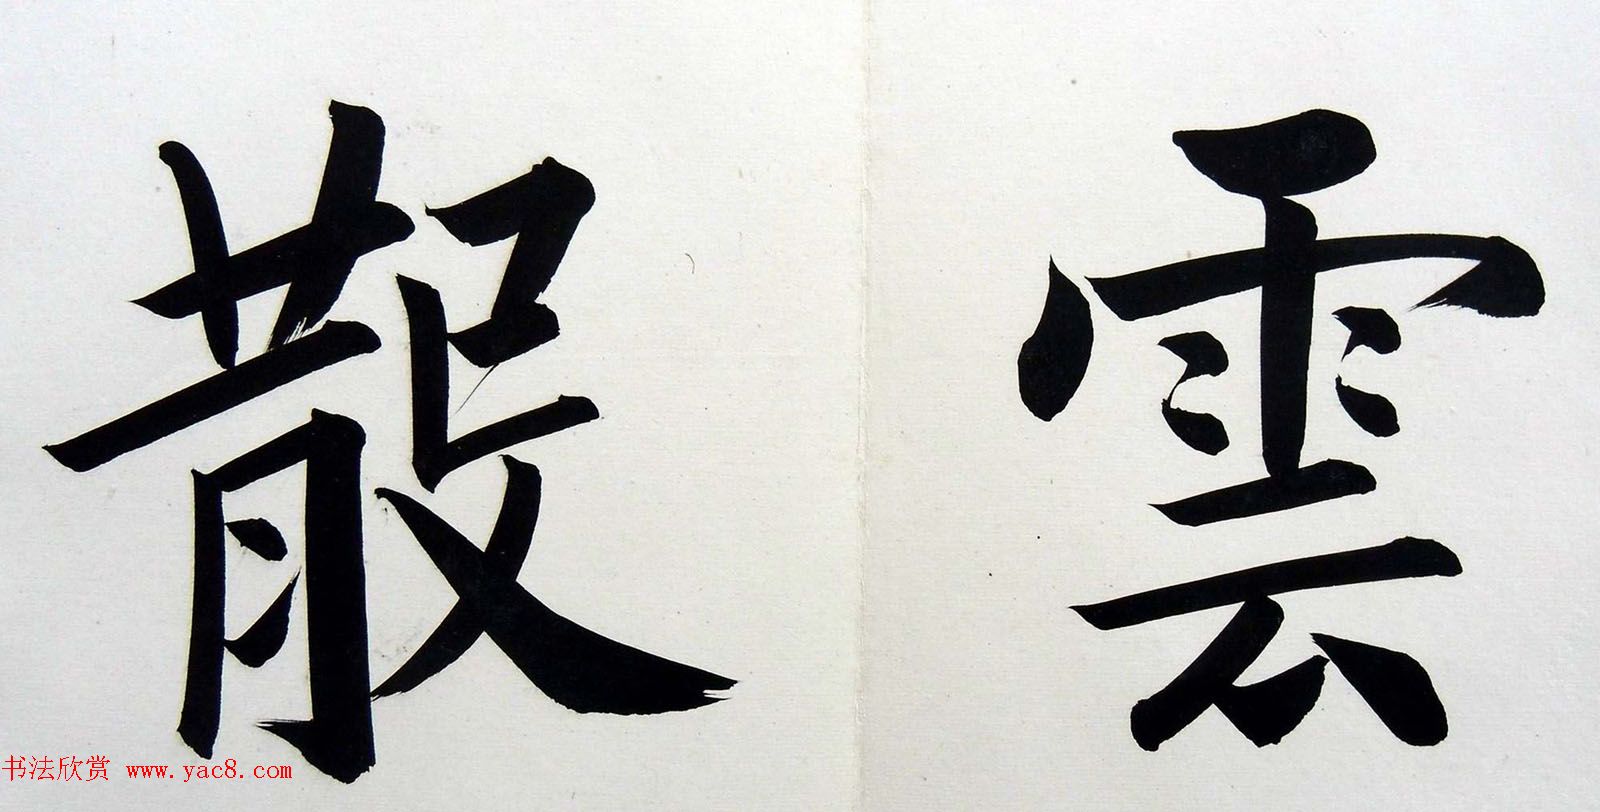 雲
散
书法欣赏 www.yac8.com